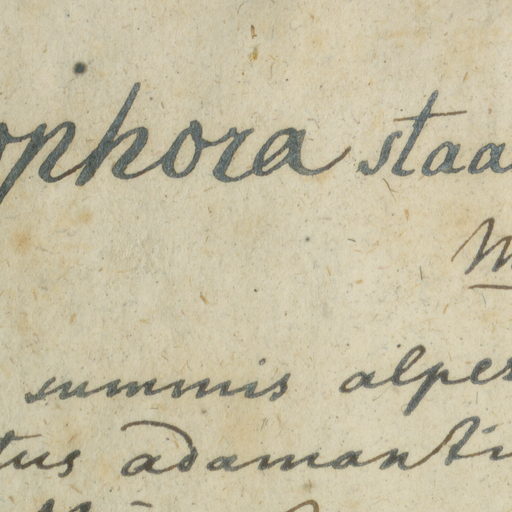 ophora staa
M
summis alpes
tus adamanti